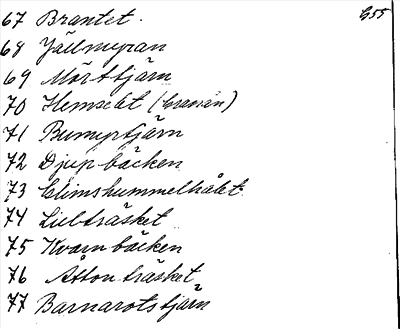 67 Brantet. 655
68 Jällmyran
69 Mörttjärn
70 Hemselet
71 Bumyrtjärn
72 Djupbäcken
73 Glimshummelhålet
74 Lillträsket
75 Kvarnbäcken
76 Åttonträsket
77 Barnarotstjärn